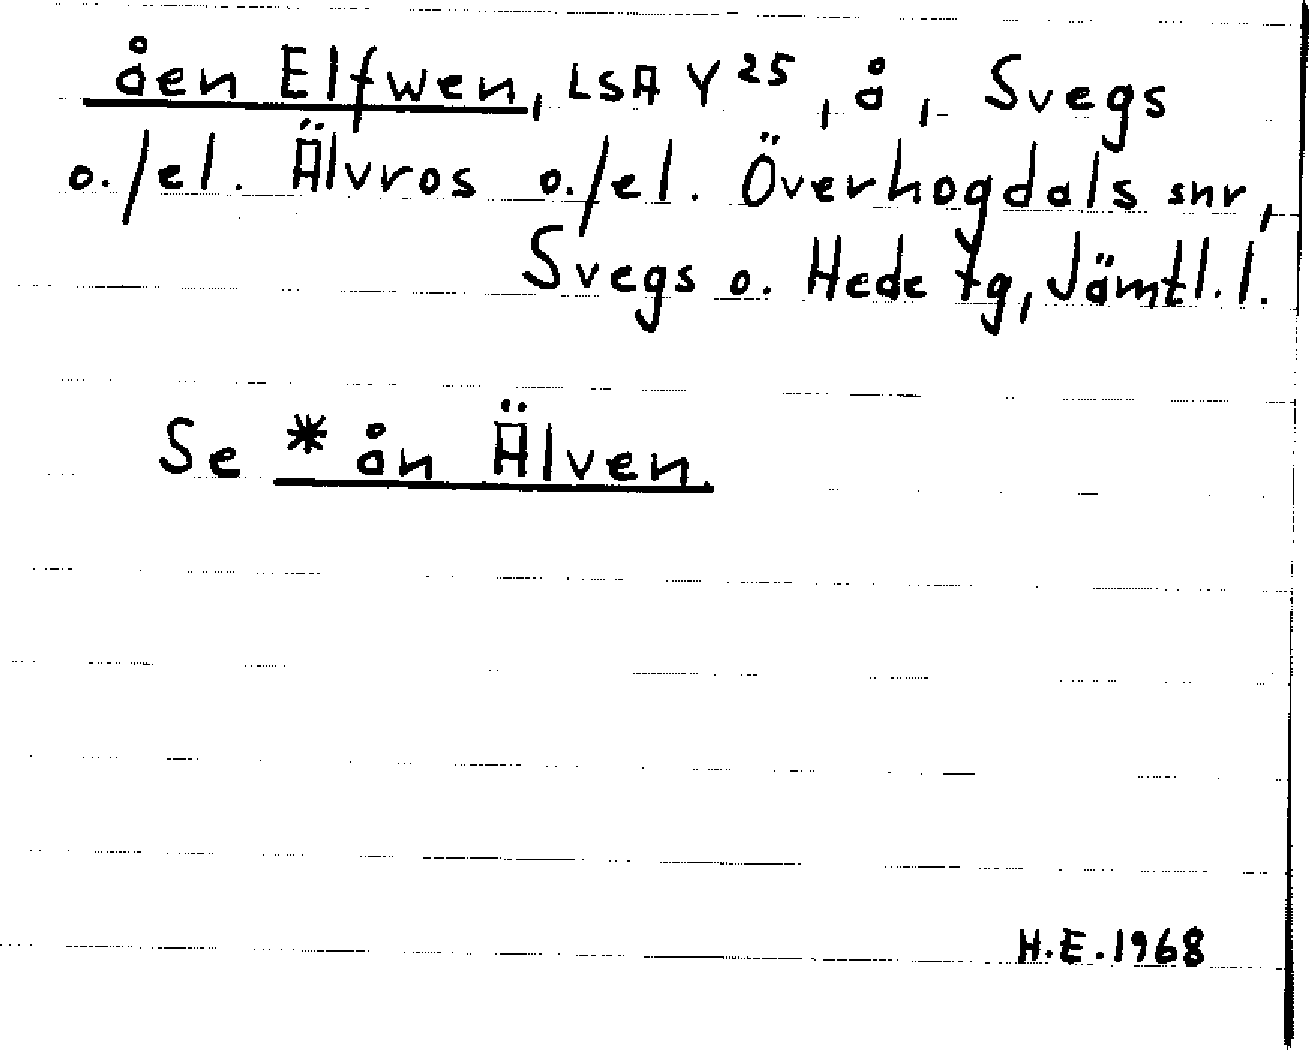 åen Elfwen, LSA Y 25, å, Svegs
o./el. Älvros o./el. Överhogdals snr,
Svegs o. Hede tg, Jämtl. l.
Se * ån Älven.
H.E. 1968